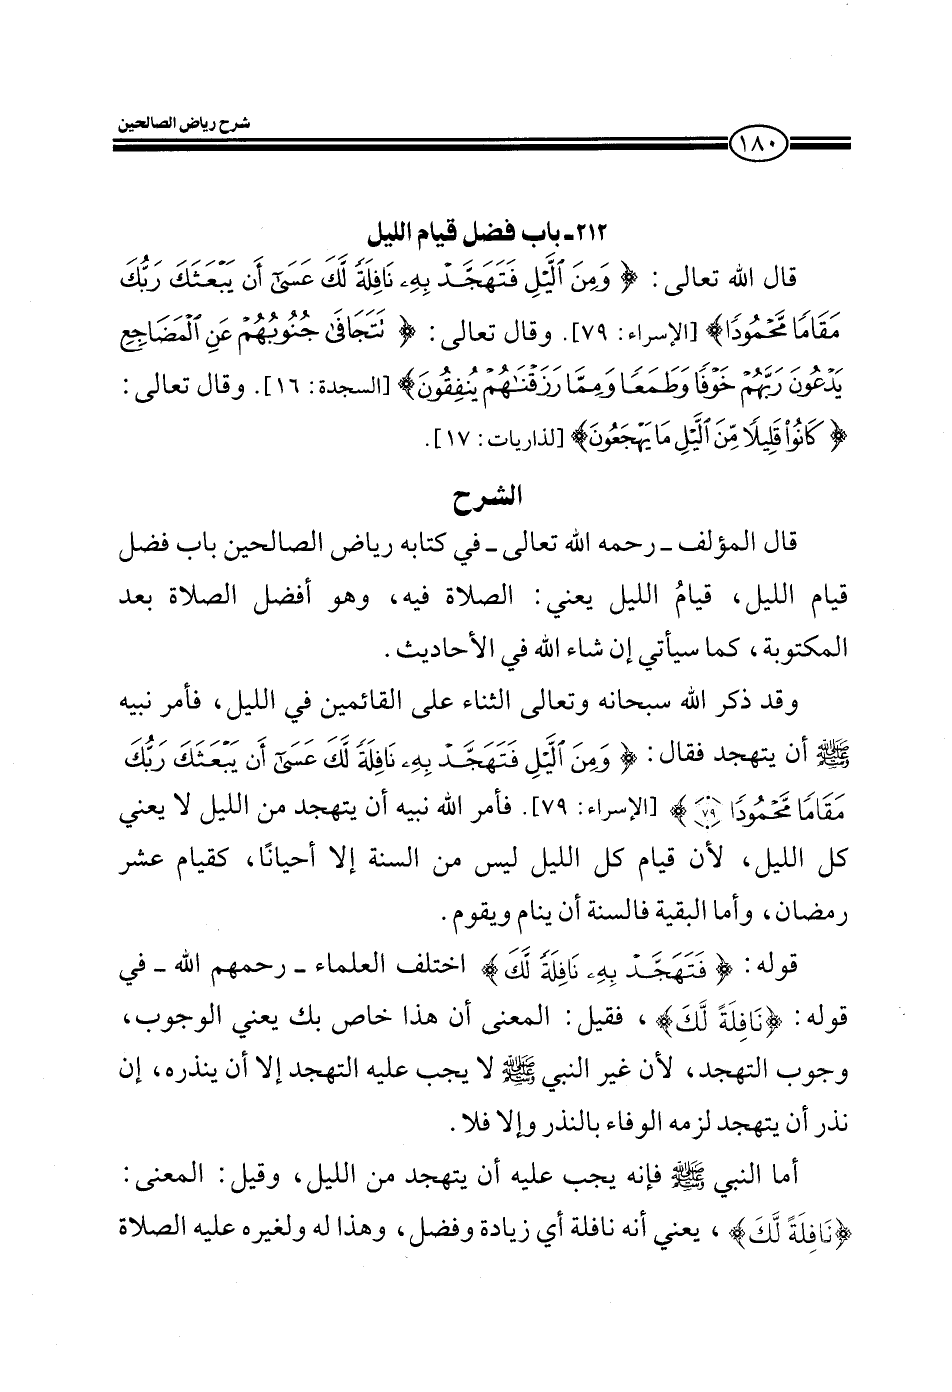 شرح رياض الصالحين
١٨٠
٢١٢ـ باب فضل قيام الليل
قال الله تعالى: ﴿وَمِنَ ٱلَّيْلِ فَتَهَجَّدْ بِهِۦ نَافِلَةً لَّكَ عَسَىٰٓ أَن يَبْعَثَكَ رَبُّكَ
مَقَامًا مَّحْمُودًا﴾ [الإسراء: ٧٩]. وقال تعالى: ﴿نَتَجَافَىٰ جُنُوبُهُمْ عَنِ ٱلْمَضَاجِعِ
يَدْعُونَ رَبَّهُمْ خَوْفًا وَطَمَعًا وَمِمَّا رَزَقْنَـٰهُمْ يُنفِقُونَ﴾ [السجدة: ١٦]. وقال تعالى:
﴿كَانُوا۟ قَلِيلًا مِّنَ ٱلَّيْلِ مَا يَهْجَعُونَ﴾ [لذاريات: ١٧].
الشرح
قال المؤلف ـ رحمه الله تعالى ـ في كتابه رياض الصالحين باب فضل
قيام الليل، قيامُ الليل يعني: الصلاة فيه، وهو أفضل الصلاة بعد
المكتوبة، كما سيأتي إن شاء الله في الأحاديث.
وقد ذكر الله سبحانه وتعالى الثناء على القائمين في الليل، فأمر نبيه
ﷺ أن يتهجد فقال: ﴿وَمِنَ ٱلَّيْلِ فَتَهَجَّدْ بِهِۦ نَافِلَةً لَّكَ عَسَىٰٓ أَن يَبْعَثَكَ رَبُّكَ
مَقَامًا مَّحْمُودًا ٧٩﴾ [الإسراء: ٧٩]. فأمر الله نبيه أن يتهجد من الليل لا يعني
كل الليل، لأن قيام كل الليل ليس من السنة إلا أحيانًا، كقيام عشر
رمضان، وأما البقية فالسنة أن ينام ويقوم.
قوله: ﴿فَتَهَجَّدْ بِهِۦ نَافِلَةً لَّكَ﴾ اختلف العلماء ـ رحمهم الله ـ في
قوله: ﴿نَافِلَةً لَّكَ﴾، فقيل: المعنى أن هذا خاص بك يعني الوجوب،
وجوب التهجد، لأن غير النبي ﷺ لا يجب عليه التهجد إلا أن ينذره، إن
نذر أن يتهجد لزمه الوفاء بالنذر وإلا فلا.
أما النبي ﷺ فإنه يجب عليه أن يتهجد من الليل، وقيل: المعنى:
﴿نَافِلَةً لَّكَ﴾، يعني أنه نافلة أي زيادة وفضل، وهذا له ولغيره عليه الصلاة